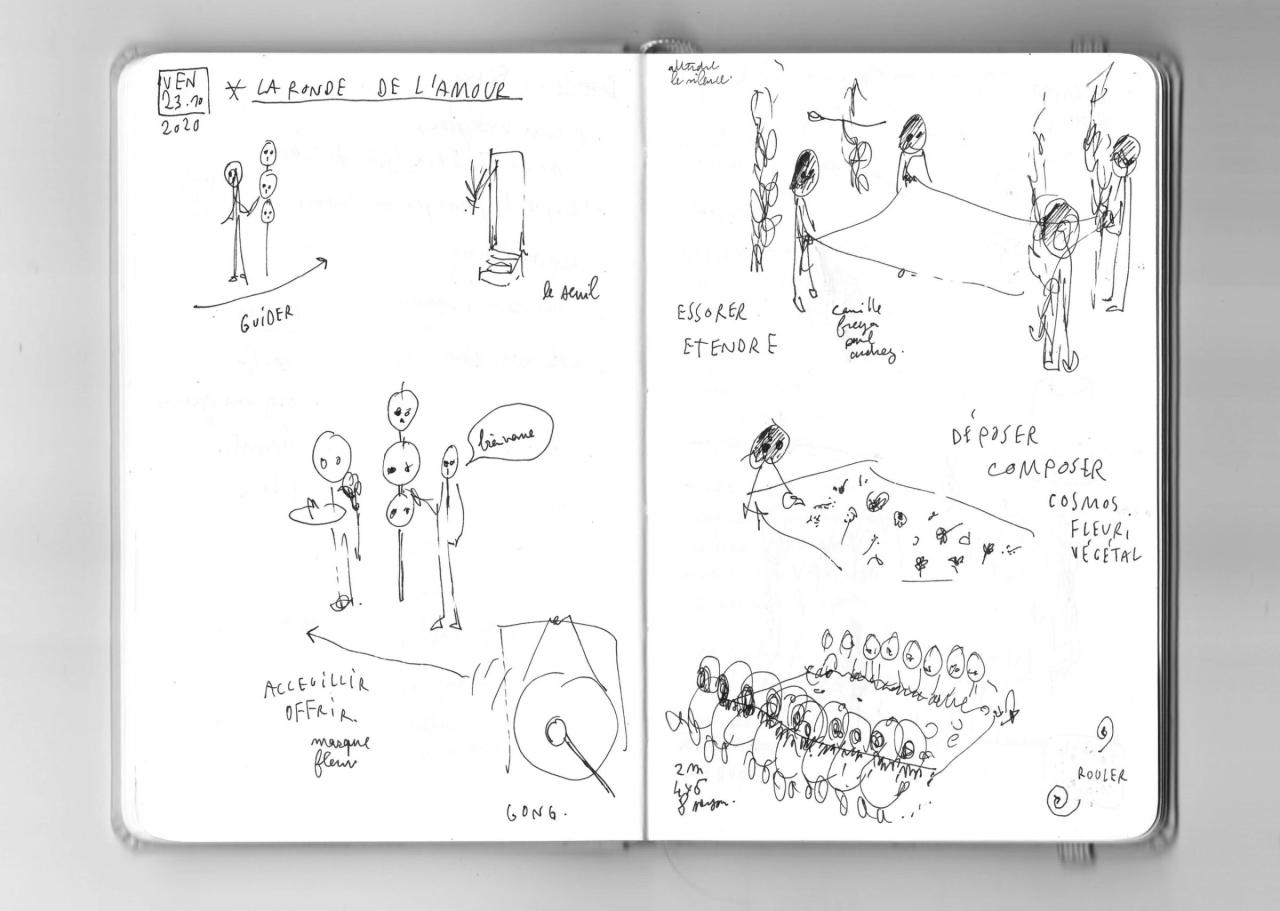 VEN
23.10
2020
* LA RONDE DE L'AMOUR
GUIDER
le seuil
bienvenue
ACCEUILLIR
OFFRIR
masque
fleur
GONG.
le silence.
ESSORER
ETENDRE
camille
freya
paul
audrey.
DÉPOSER
COMPOSER
COSMOS
FLEURI
VÉGÉTAL
2m
ROULER